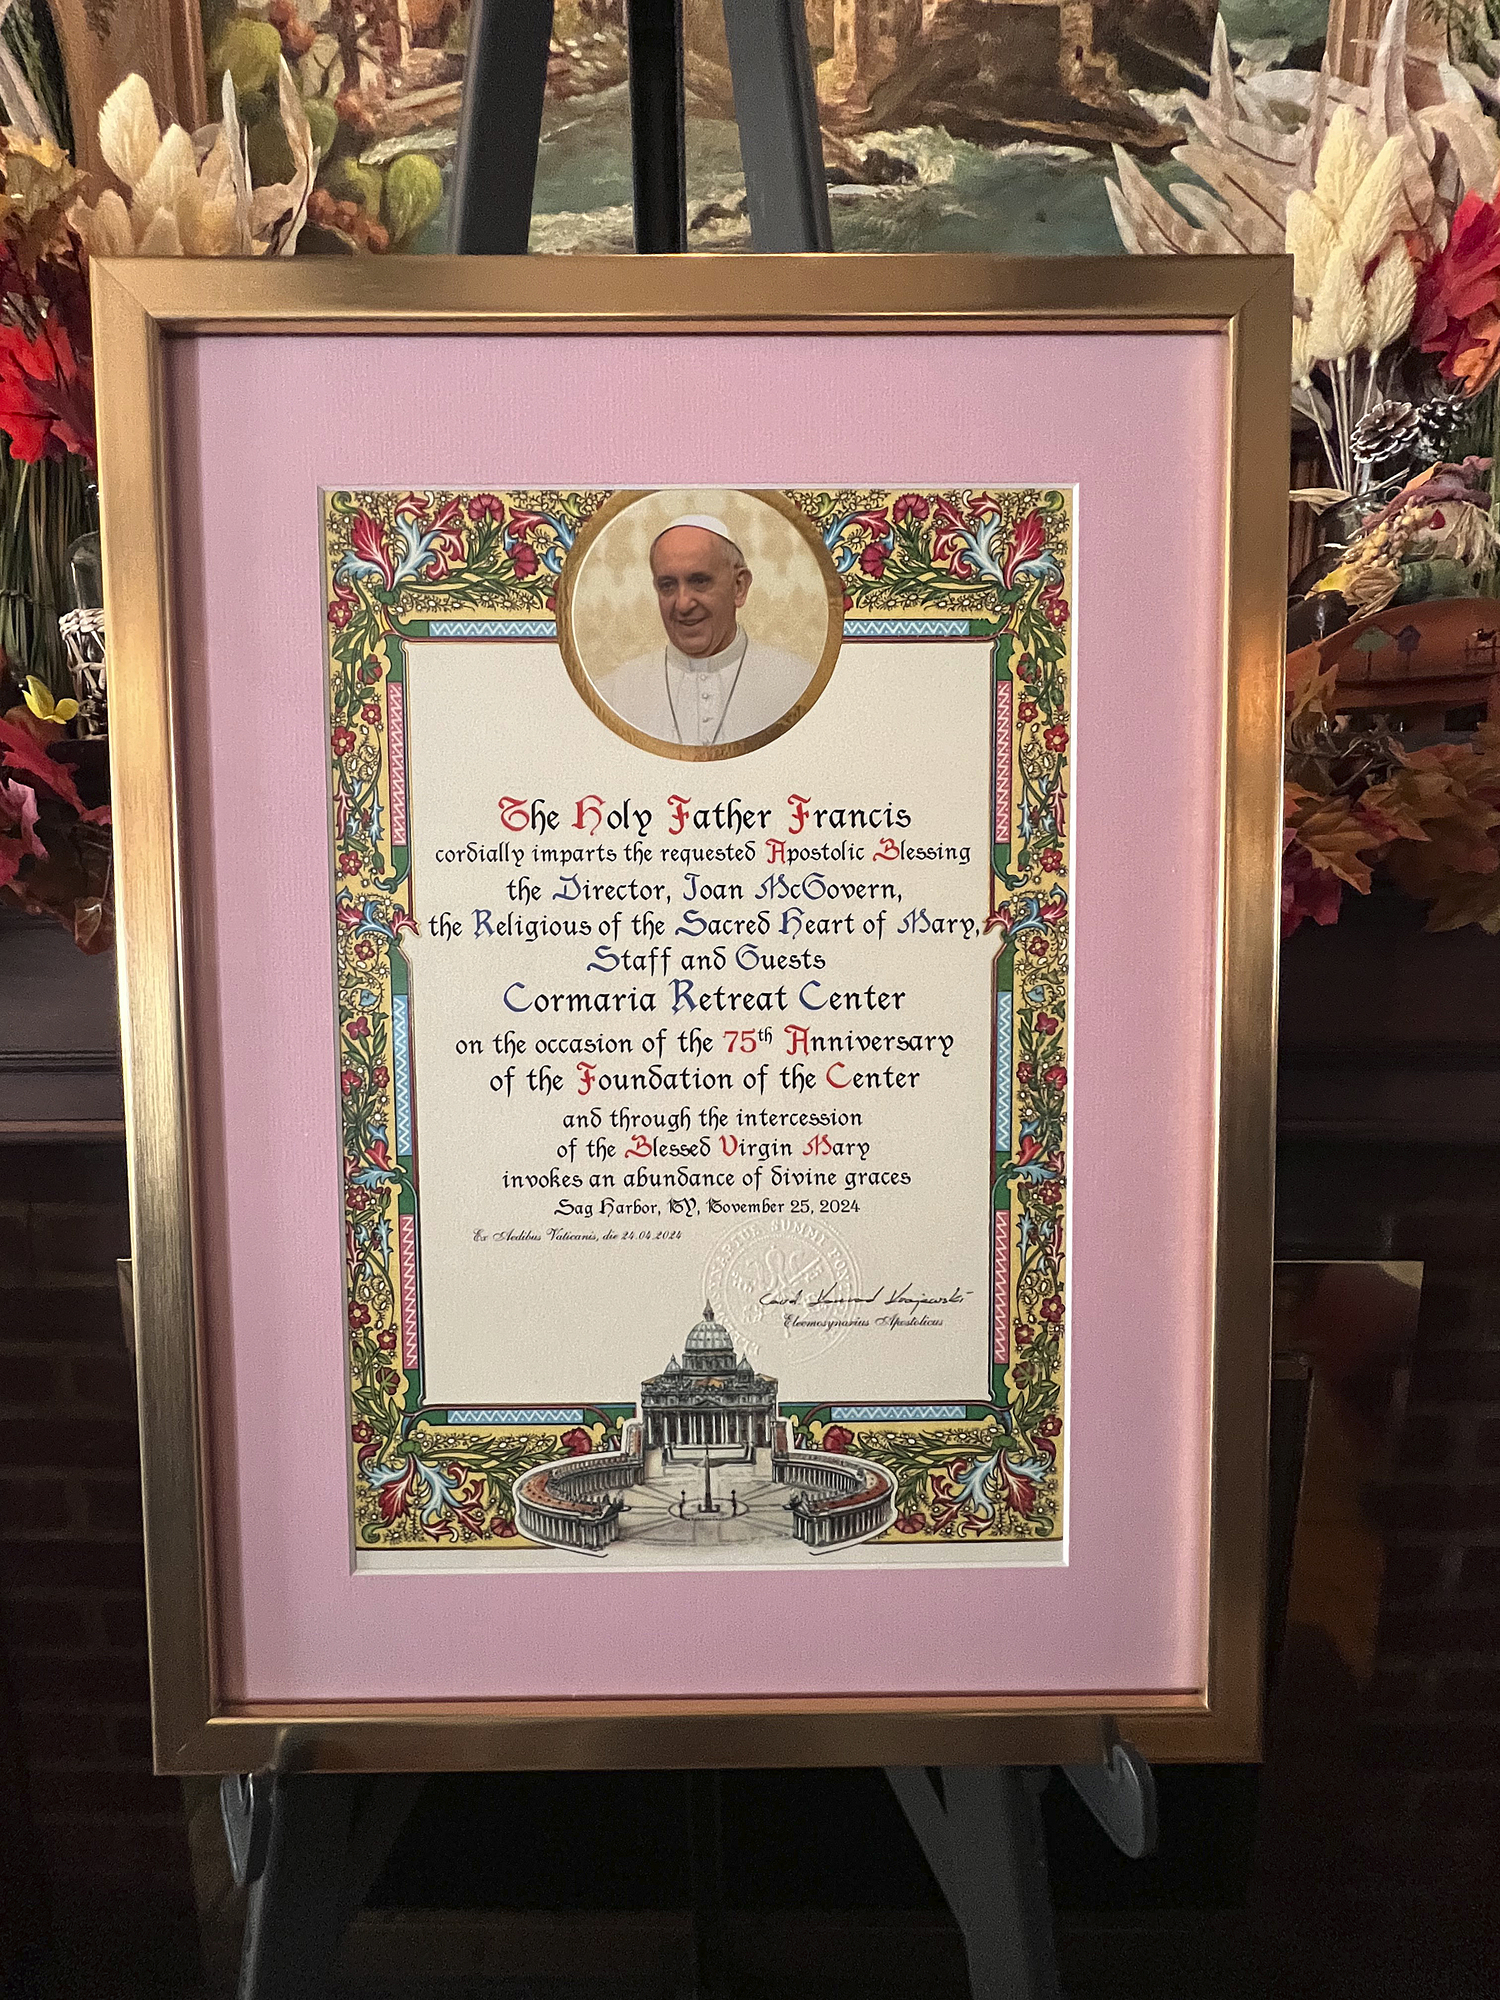 The Holy Father Francis
cordially imparts the requested Apostolic Blessing
the Director, Joan McGovern,
the Religious of the Sacred Heart of Mary,
Staff and Guests
Cormaria Retreat Center
on the occasion of the 75th Anniversary
of the Foundation of the Center
and through the intercession
of the Blessed Virgin Mary
invokes an abundance of divine graces
Sag Harbor, NY, November 25, 2024
Ex Aedibus Vaticanis, die 24.04.2024
SUMMI PON
Card Konrad Krajewski
Eleemosynarius Apostolicus